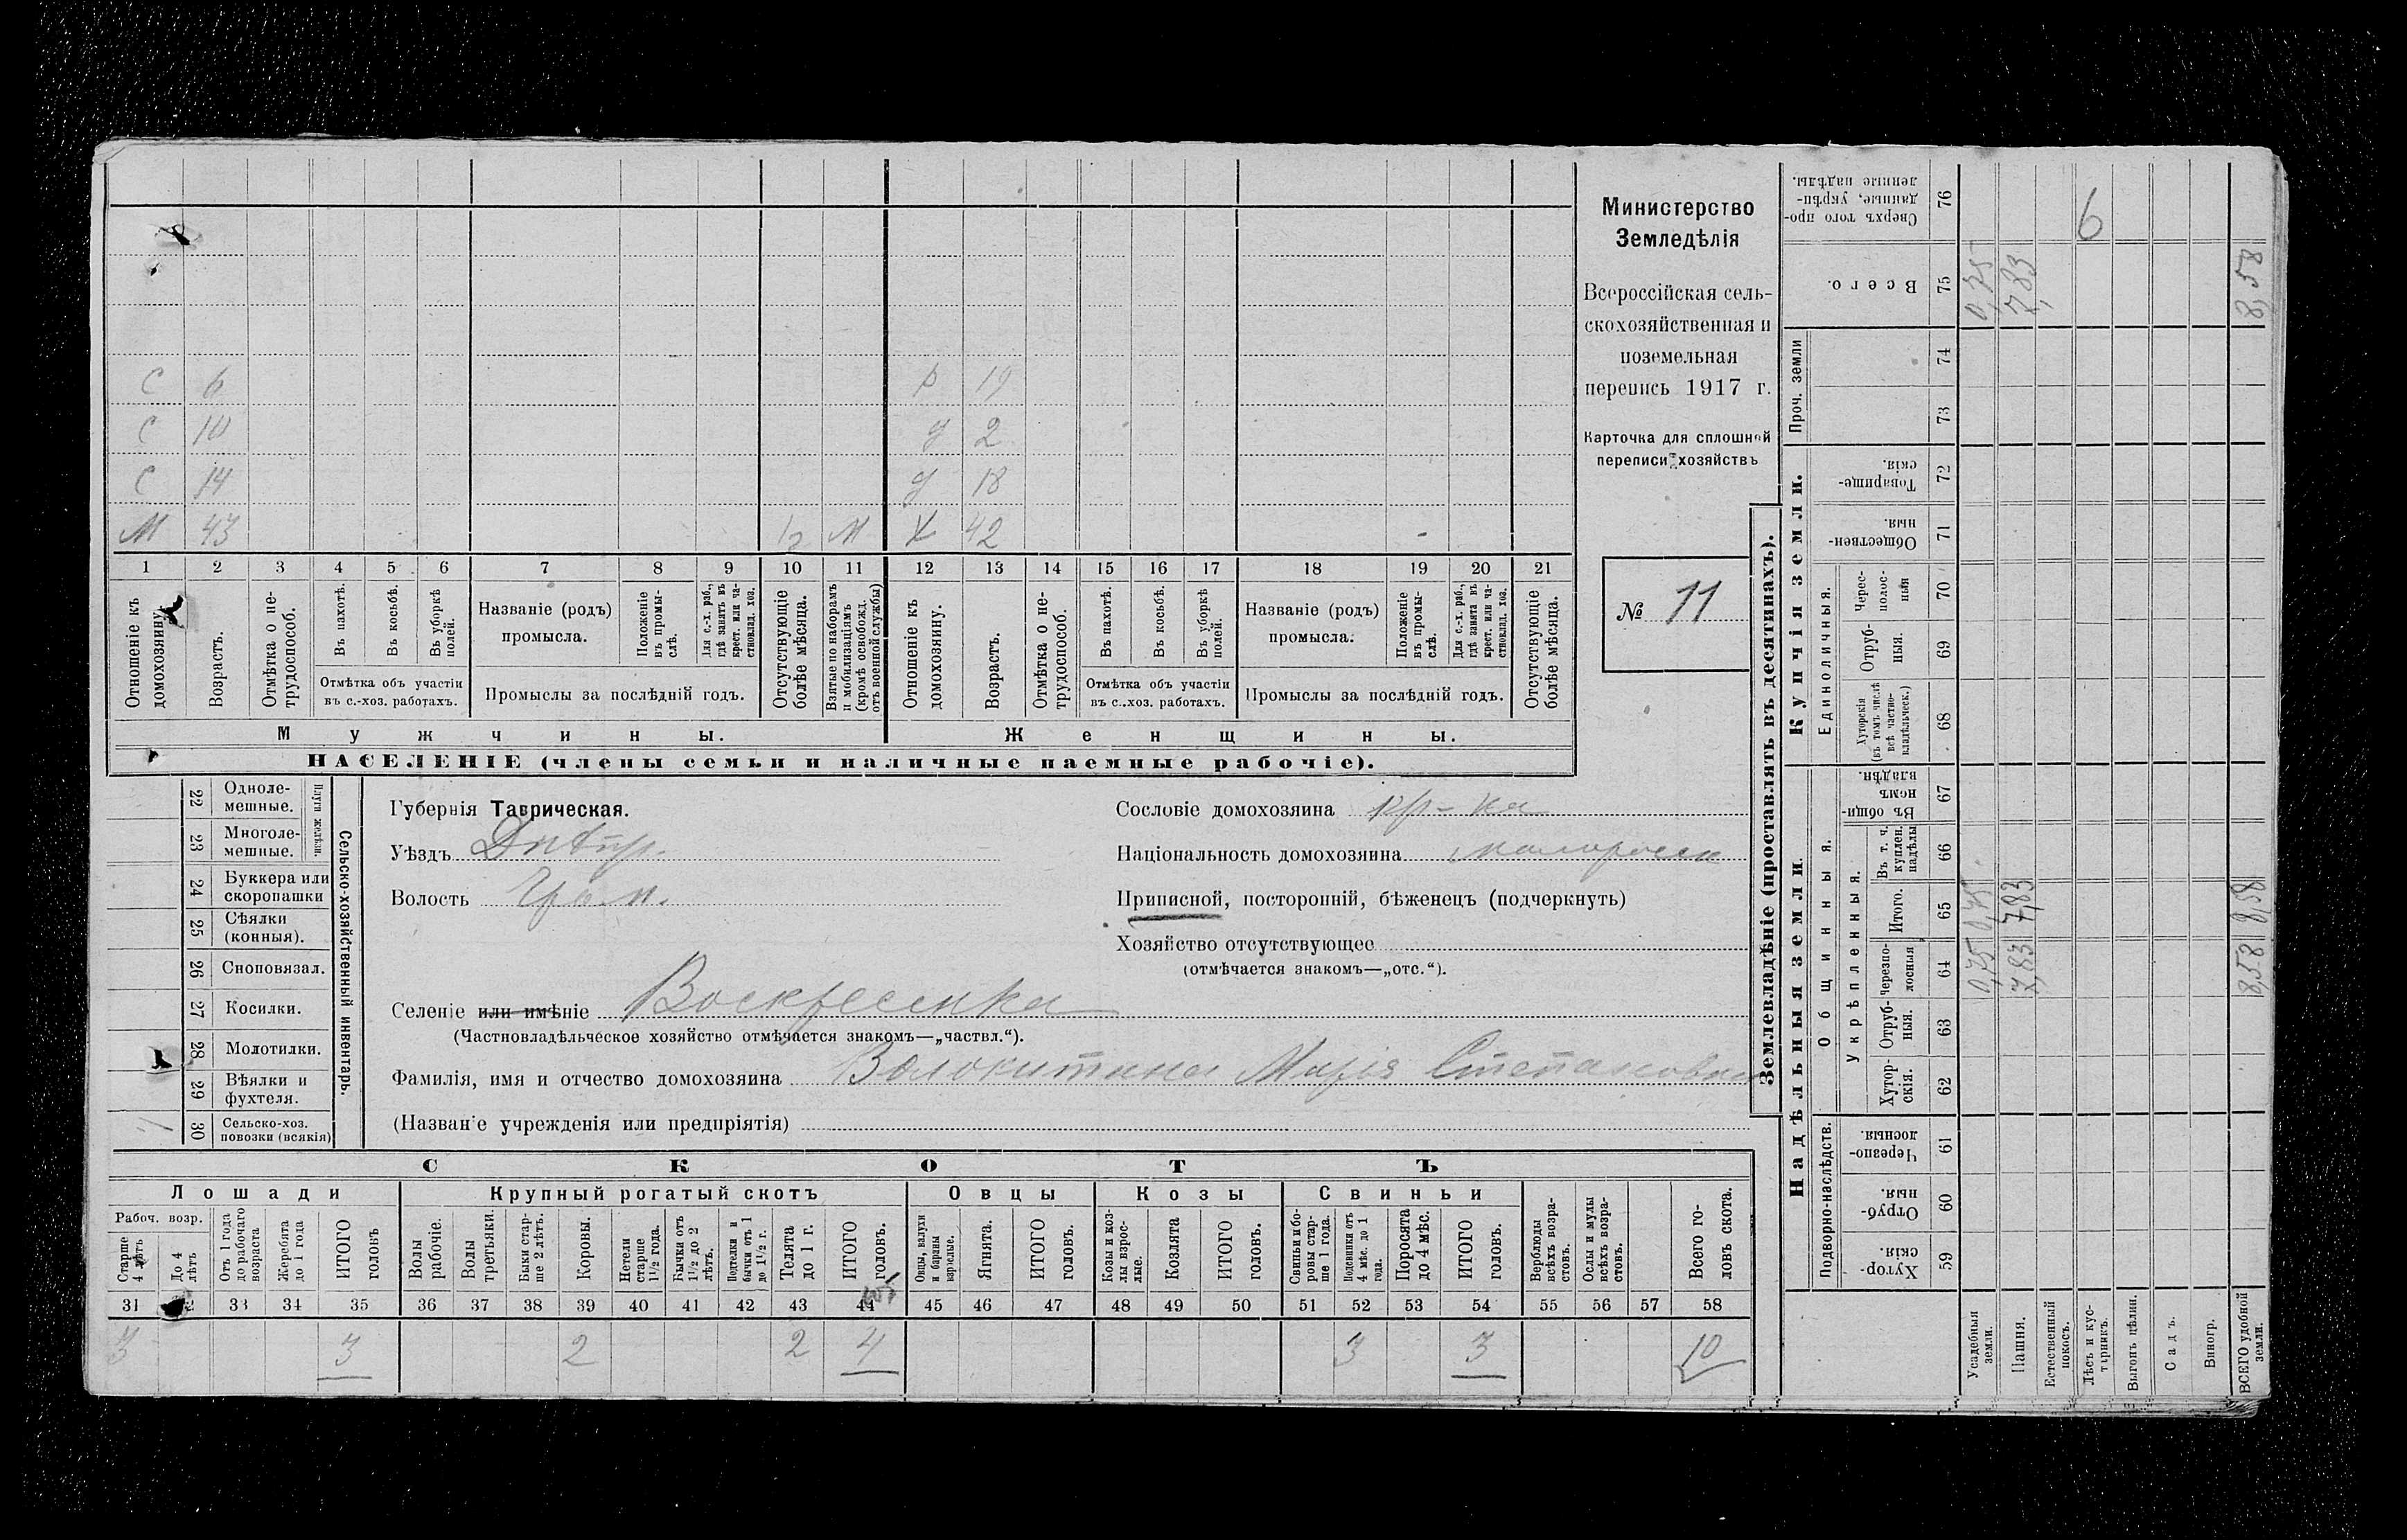 Министерство
Земледѣлія
Всероссійская сель-
скохозяйственная и
поземельная
перепись 1917 г.
Карточка для сплошной
переписи хозяйствъ
№ 11
С 6 р 19
С 10 д 2
С 14 д 18
М 43 М Х 42
1 2 3 4 5 6 7 8 9 10 11 12 13 14 15 16 17 18 19 20 21
Отношеніе къ домохозяину.
Возрастъ.
Отмѣтка о нетрудоспособ.
Въ пахотѣ.
Въ косьбѣ.
Въ уборкѣ полей.
Отмѣтка объ участіи
въ с.-хоз. работахъ.
Названіе (родъ)
промысла.
Положеніе въ промы-слѣ.
Для с.-х. раб., гдѣ занятъ въ крест. или ча-стновлад. хоз.
Промыслы за послѣдній годъ.
Отсутствующіе болѣе мѣсяца.
Взятые по наборамъ и мобилизаціямъ (кромѣ освобожд. отъ военной службы)
Отношеніе къ домохозяину.
Возрастъ.
Отмѣтка о не-трудоспособ.
Въ пахотѣ.
Въ косьбѣ.
Въ уборкѣ полей.
Отмѣтка объ участіи
въ с.-хоз. работахъ.
Названіе (родъ)
промысла.
Положеніе въ промы-слѣ.
Для с.-х. раб., гдѣ занята въ крест. или ча-стновлад. хоз.
Промыслы за послѣдній годъ.
Отсутствующіе болѣе мѣсяца.
Мужчины.
Женщины.
НАСЕЛЕНІЕ (члены семьи и наличные наемные рабочіе).
Сельско-хозяйственный инвентарь.
Плуги желѣзн.
22 Одноле-мешные.
23 Многоле-мешные.
24 Буккера или скоропашки
25 Сѣялки (конныя).
26 Сноповязал.
27 Косилки.
28 Молотилки.
29 Вѣялки и фухтеля.
30 Сельско-хоз. повозки (всякія) 1
Губернія Таврическая.
Уѣздъ Днѣпр.
Волость
Селеніе или имѣніе Воскресенка
(Частновладѣльческое хозяйство отмѣчается знакомъ—„частвл.“).
Фамилія, имя и отчество домохозяина Волокитина Марія Степановна
(Названіе учрежденія или предпріятія)
Сословіе домохозяина кр-ка
Національность домохозяина малоросска
Приписной, посторонній, бѣженецъ (подчеркнуть)
Хозяйство отсутствующее
(отмѣчается знакомъ—„отс.“).
СКОТЪ
Лошади
Крупный рогатый скотъ
Овцы
Козы
Свиньи
Рабоч. возр.
Старше 4 лѣтъ
До 4 лѣтъ
Отъ 1 года до рабочаго возраста
Жеребята до 1 года
ИТОГО головъ
Волы рабочіе.
Волы третьяки.
Быки стар-ше 2 лѣтъ.
Коровы.
Нетели старше 1½ года.
Бычки отъ 1½ до 2 лѣтъ.
Подтелки и бычки отъ 1 до 1½ г.
Телята до 1 г.
ИТОГО головъ.
Овцы, валухи и бараны взрослые.
Ягнята.
ИТОГО головъ.
Козы и коз-лы взрос-лые.
Козлята
ИТОГО головъ.
Свиньи и бо-ровы стар-ше 1 года.
Подсвинки отъ 4 мѣс. до 1 года.
Поросята до 4 мѣс.
ИТОГО головъ.
Верблюды всѣхъ возра-стовъ.
Ослы и мулы всѣхъ возра-стовъ.
Всего го-ловъ скота.
31 32 33 34 35 36 37 38 39 40 41 42 43 44 45 46 47 48 49 50 51 52 53 54 55 56 57 58
3 3 2 2 4 3 3 10
Землевладѣніе (проставлять въ десятинахъ).
Надѣльныя земли.
Купчія земли.
Проч. земли
Подворно-наслѣдств.
Общинныя.
Укрѣпленныя.
Единоличныя.
Хутор-скія. 59
Отруб-ныя. 60
Черезпо-лосныя. 61
Хутор-скія. 62
Отруб-ныя. 63
Черезпо-лосныя 64
Итого. 65
Въ т. ч. куплен. надѣлы 66
Въ общин-номъ владѣн. 67
Хуторскія (въ томъ числѣ всѣ частно-владѣльческ.) 68
Отруб-ныя. 69
Черес-полос-ныя 70
Обществен-ныя. 71
Товарище-скія. 72
73
74
Всего. 75
Сверхъ того про-данные, укрѣп-ленные надѣлы. 76
Усадебныя земли. 0,75 0,75 0,75
Пашня. 7,83 7,83 7,83
Естественный покосъ.
Лѣсъ и кус-тарникъ. 6
Выгонъ цѣлин.
Садъ.
Виногр.
ВСЕГО удобной земли. 8,58 8,58 8,58